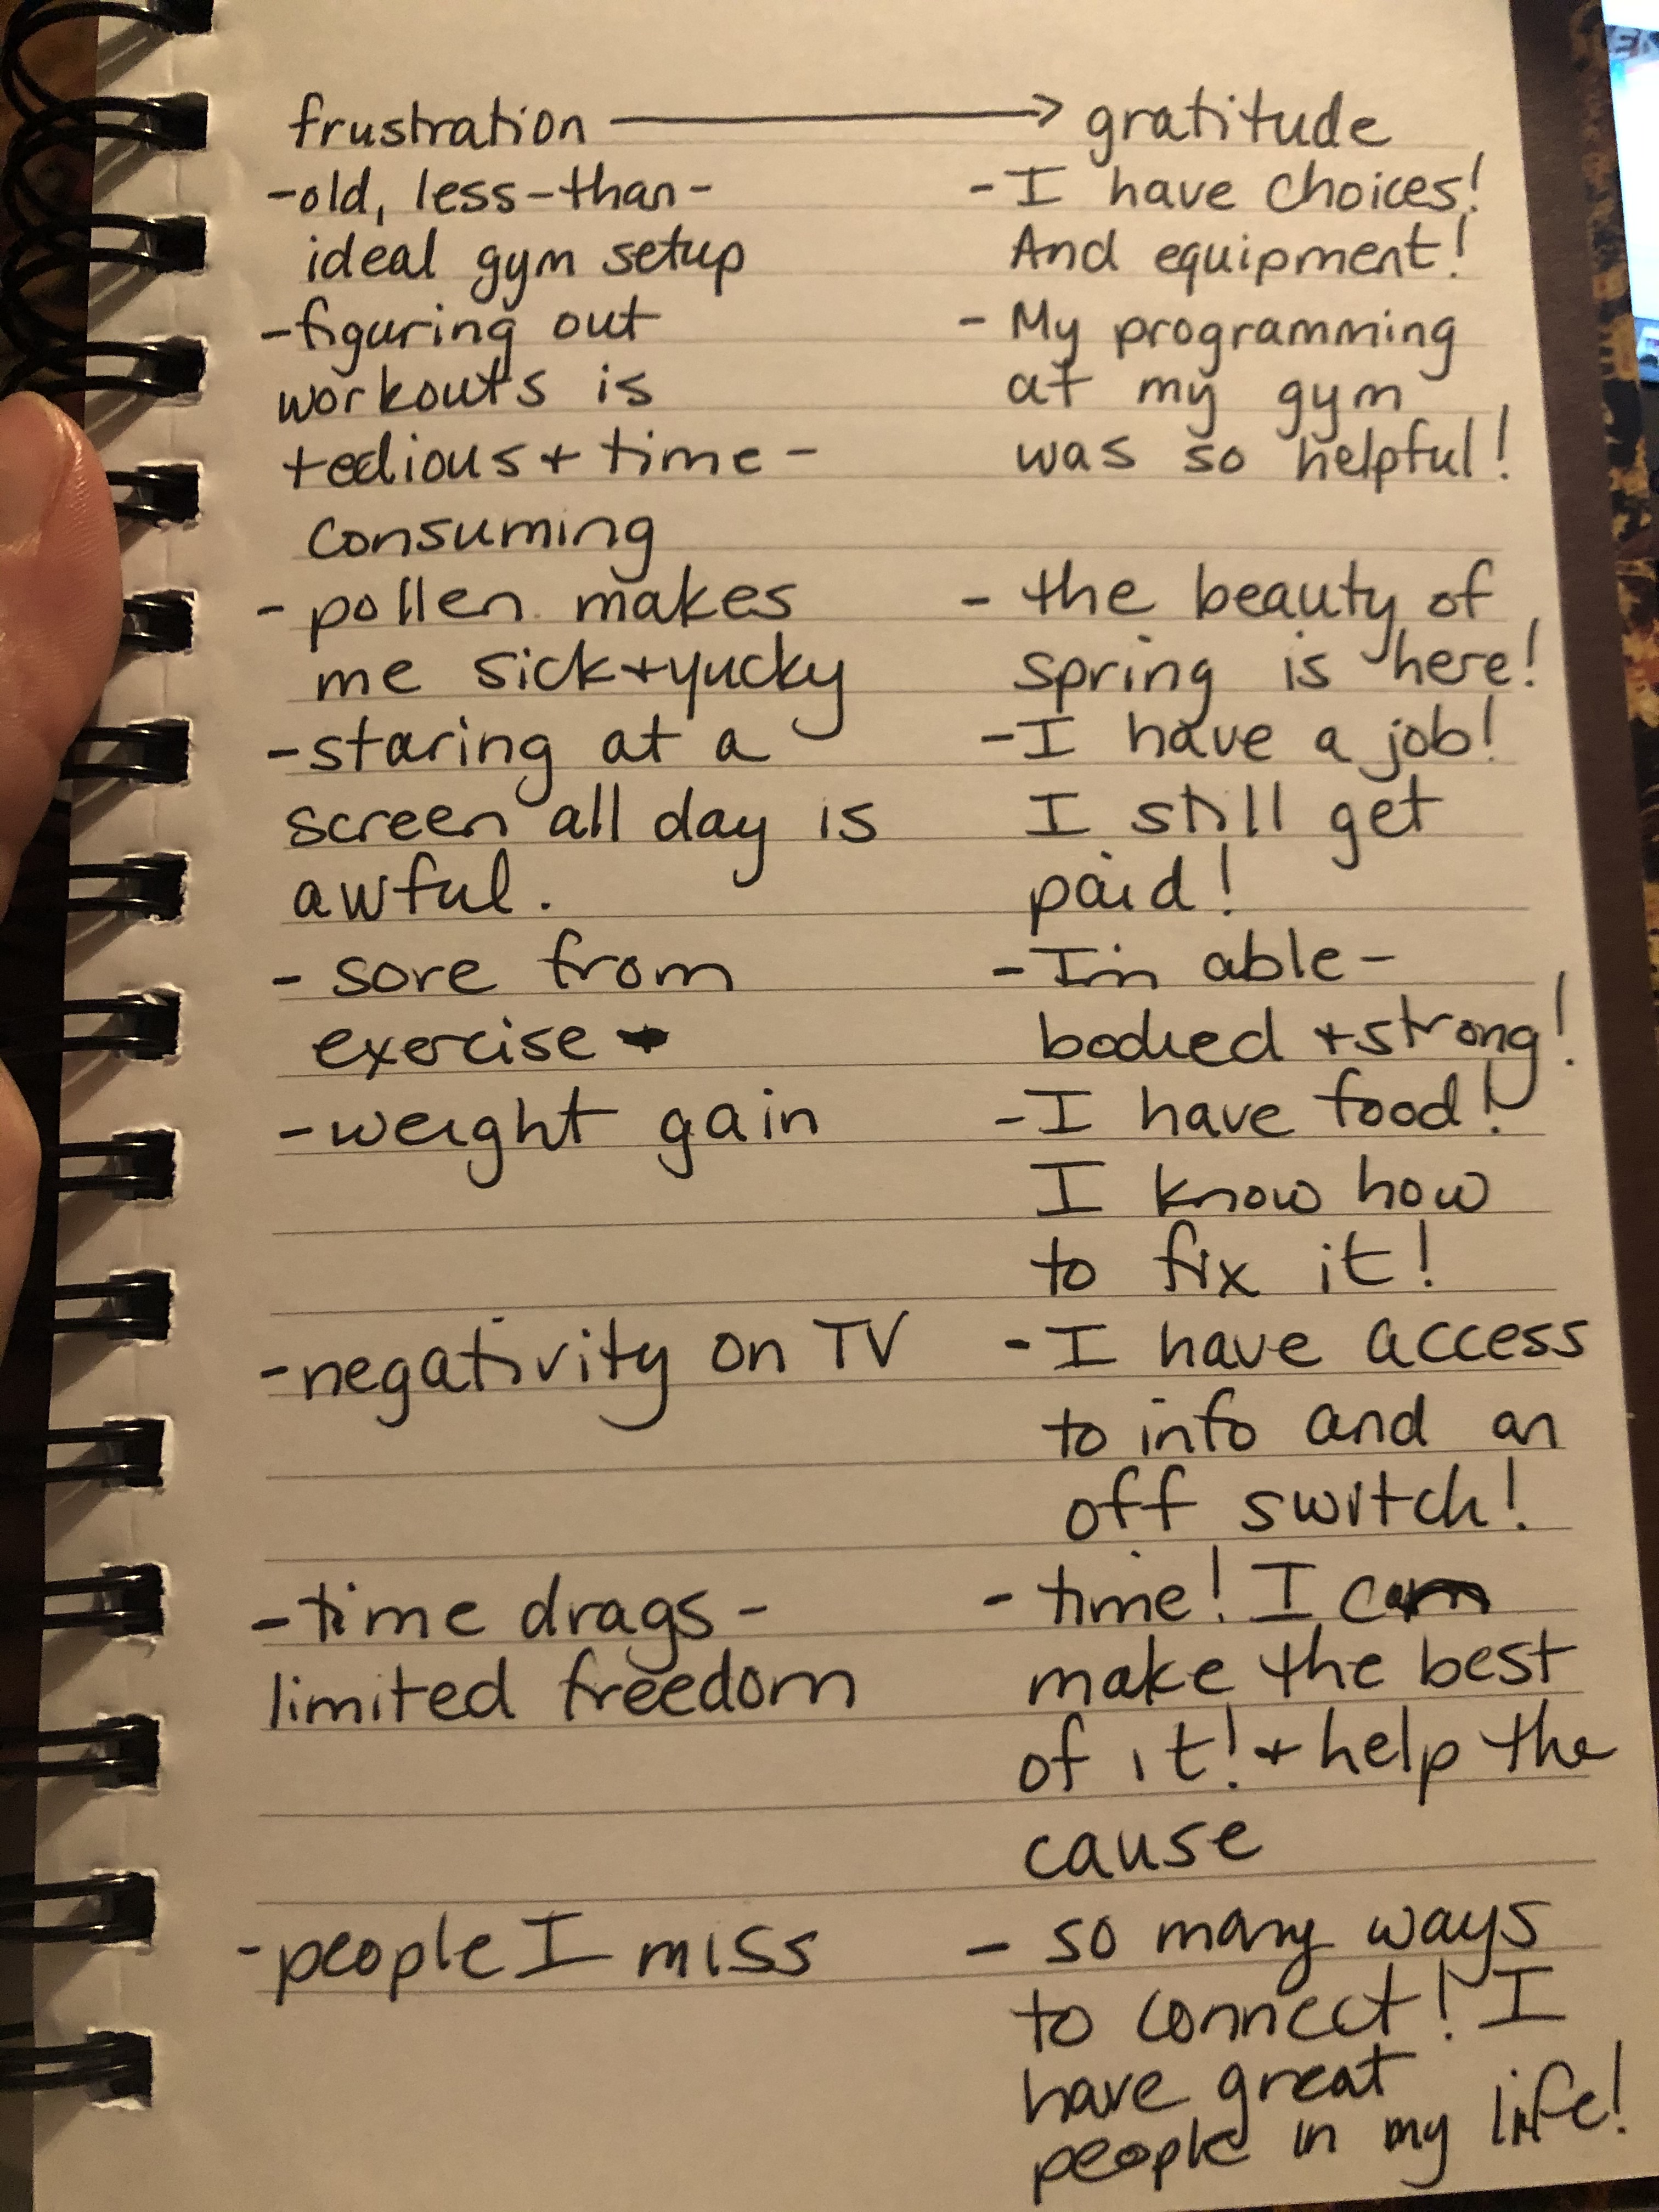 frustration → gratitude
-old, less-than-
ideal gym setup
-figuring out
workouts is
tedious + time-
consuming
- pollen makes
me sick + yucky
-staring at a
screen all day is
awful.
- sore from
exercise
-weight gain
-negativity on TV
-time drags-
limited freedom
-people I miss
-I have choices!
And equipment!
- My programming
at my gym
was so helpful!
- the beauty of
spring is here!
-I have a job!
I still get
paid!
-I'm able-
bodied + strong!
-I have food!
I know how
to fix it!
-I have access
to info and an
off switch!
- time! I can
make the best
of it! + help the
cause
- so many ways
to connect! I
have great
people in my life!